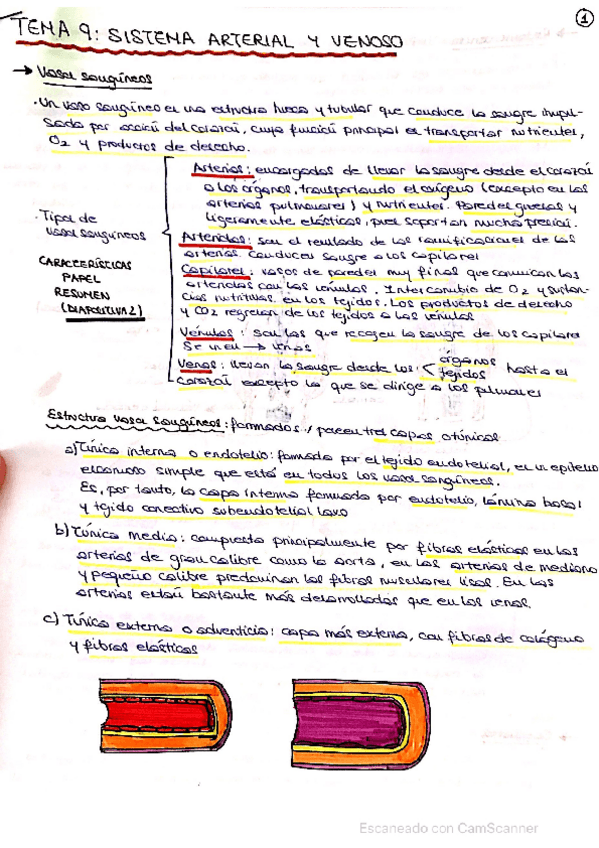 1
TEMA 9: SISTEMA ARTERIAL Y VENOSO
→ Vasos sanguíneos
· Un vaso sanguíneo es una estructura hueca y tubular que conduce la sangre impul-
sada por acción del corazón, cuya función principal es transportar nutrientes,
O2 y productos de desecho.
· Tipos de
vasos sanguíneos
CARACTERÍSTICAS
PAPEL
RESUMEN
(DIAPOSITIVA 2)
Arterias: encargados de llevar la sangre desde el corazón
a los órganos, transportando el oxígeno (excepto en las
arterias pulmonares) y nutrientes. Paredes gruesas y
ligeramente elásticas, pues soportan mucha presión.
Arteriolas: son el resultado de las ramificaciones de las
arterias. Conducen sangre a los capilares
Capilares: vasos de paredes muy finas que comunican las
arteriolas con las vénulas. Intercambio de O2 y sustan-
cias nutritivas en los tejidos. Los productos de desecho
y CO2 regresan de los tejidos a las vénulas
Vénulas: son las que recogen la sangre de los capilares
Se unen → venas
Venas: llevan la sangre desde los < órganos
tejidos hasta el
corazón excepto la que se dirige a los pulmones
Estructura vasos sanguíneos: formados / poseen tres capas o túnicas
a) Túnica interna o endotelio: formada por el tejido endotelial, es un epitelio
escamoso simple que está en todos los vasos sanguíneos.
Es, por tanto, la capa interna formada por endotelio, lámina basal
y tejido conectivo subendotelial laxo
b) Túnica media: compuesta principalmente por fibras elásticas en las
arterias de gran calibre como la aorta, en las arterias de mediano
y pequeño calibre predominan las fibras musculares lisas. En las
arterias están bastante más desarrolladas que en las venas.
c) Túnica externa o adventicia: capa más externa, con fibras de colágeno
y fibras elásticas
Escaneado con CamScanner